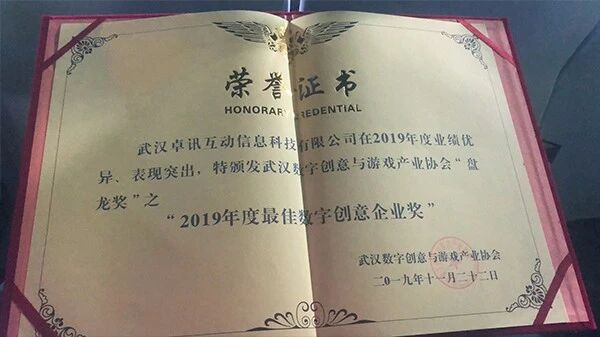 荣誉证书
HONORARY CREDENTIAL
武汉卓讯互动信息科技有限公司在2019年度业绩优
异、表现突出，特颁发武汉数字创意与游戏产业协会“盘
龙奖”之
“2019年度最佳数字创意企业奖”
武汉数字创意与游戏产业协会
二〇一九年十一月二十二日